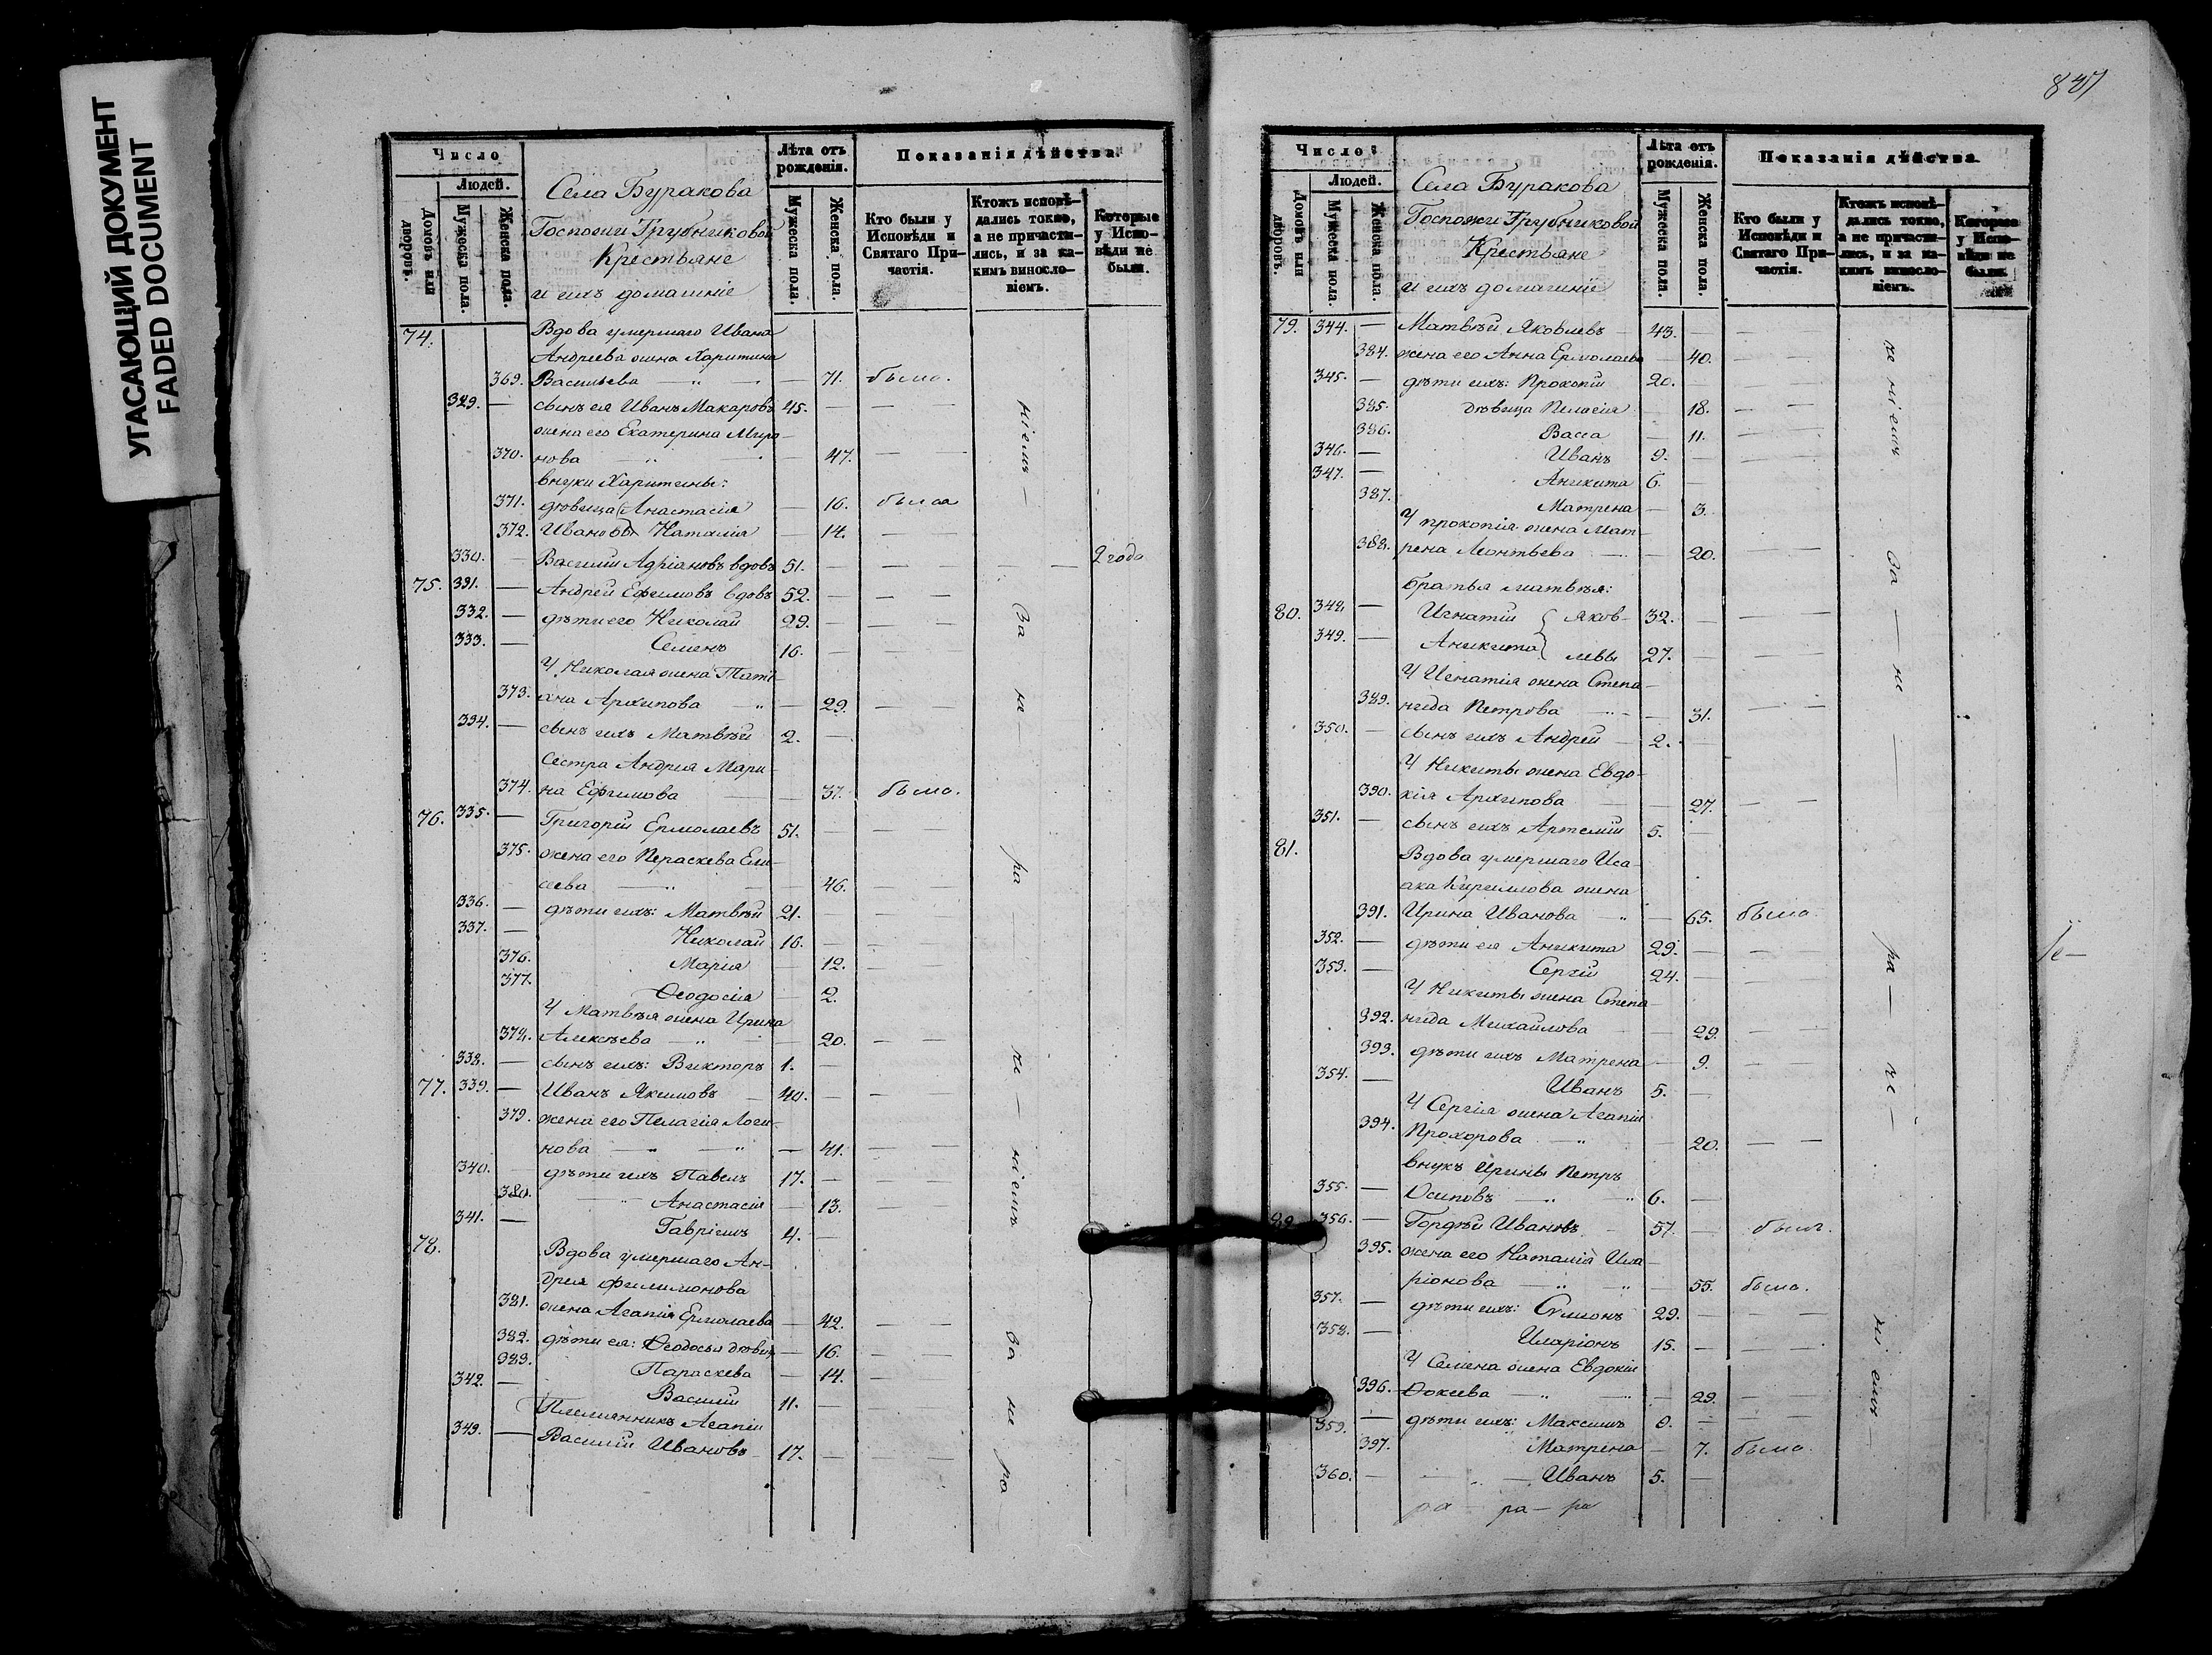 УГАСАЮЩИЙ ДОКУМЕНТ
FADED DOCUMENT
Число
Людей.
Домовъ или дворовъ.
Мужеска пола.
Женска пола.
Села Буракова
Госпожи Трубниковой
Крестьяне
и ихъ домашніе
Лѣта отъ рожденія.
Мужеска пола.
Женска пола.
Показанія дѣйства.
Кто были у Исповѣди и Святаго При-частія.
Ктожъ исповѣ-дались токмо, а не причасти-лись, и за ка-кимъ винословіемъ.
Которые у Испо-вѣди не были.
74. Вдова умершаго Ивана
Андреева жена Харитина
369. Васильева — 71. была.
329. — сынъ ея Иванъ Макаровъ 45. —
жена его Екатерина Миро-
370. нова — 47. —
внуки Харитины:
371. дѣвица Анастасія — 16. была
372. Ивановы Наталія — 14. —
330. — Василій Адріановъ вдовъ 51. — 2 года
75. 331. — Андрей Ефимовъ вдовъ 52. —
332. — дѣти его Николай 29. —
333. — Семенъ 16. —
У Николая жена Татi-
373. яна Архипова — 29. —
334. — сынъ ихъ Матвѣй 2. —
Сестра Андрея Мари-
374. на Ефимова — 37. была.
76. 335. — Григорій Ермолаевъ 51. —
375. жена его Параскева Ели-
сеева — 46. —
336. — дѣти ихъ: Матвѣй 21. —
337. — Николай 16. —
376. Марія — 12. —
377. Ѳеодосія — 2.
У Матвѣя жена Ирина
378. Алексѣева — 20. —
338. — сынъ ихъ: Викторъ 1. —
77. 339. — Иванъ Якимовъ — 40. —
379. жена его Пелагія Логи-
нова — 41. —
340. дѣти ихъ Павелъ 17. —
380. Анастасія — 13. —
341. — Гавріилъ 4. —
78. Вдова умершаго Ан-
дрея Филимонова
381. жена Агапія Ермолаева — 42. —
382. дѣти ея: Ѳеодосья дѣвица — 16. —
383. Параскева — 14. —
342. — Василій 11. —
Племянникъ Агапіи
343. — Василій Ивановъ 17. —
За не ра че ніемъ
847
Число
Людей.
Домовъ или дворовъ.
Мужеска пола.
Женска пола.
Села Буракова
Госпожи Трубниковой
Крестьяне
и ихъ домашніе
Лѣта отъ рожденія.
Мужеска пола.
Женска пола.
Показанія дѣйства.
Кто были у Исповѣди и Святаго При-частія.
Ктожъ исповѣ-дались токмо, а не причасти-лись, и за ка-кимъ винословіемъ.
Которые у Испо-вѣди не были.
79. 344. — Матвѣй Яковлевъ — 43. —
384. жена его Анна Ермолаева — 40. —
345. — дѣти ихъ: Прокопій 20. —
385. дѣвица Пелагія — 18. —
386. Васса — 11. —
346. — Иванъ 9. —
347. — Аникита 6. —
387. Матрена — 3.
У Прокопія жена Мат-
388. рена Леонтьева — 20. —
братья Матвѣя:
80. 348. — Игнатій Яков- 32. —
349. — Аникита левы 27. —
У Игнатія жена Степа-
389. нида Петрова — 31. —
350. — сынъ ихъ Андрей — 2. —
У Никиты жена Евдо-
390. кія Архипова — 27. —
351. — сынъ ихъ Артемій 5. —
81. Вдова умершаго Иса-
ака Кирилова жена
391. Ирина Иванова — 65. была
352. — дѣти ея Аникита 29. —
353. — Сергій 24. —
У Никиты жена Степа-
392. нида Михайлова — 29. —
393. дѣти ихъ Матрена — 9. —
354. — Иванъ 5. —
У Сергія жена Агапія
394. Прохорова — 20. —
внукъ Ирины Петръ
355. — Осиповъ — 6. —
82. 356. — Гордѣй Ивановъ 57. — былъ.
395. жена его Наталія Ила-
ріонова — 55. была.
357. — дѣти ихъ: Сѵмеонъ 29. —
358. — Иларіонъ 15. —
У Семена жена Евдокія
396. Фокеева — 29. —
359. — дѣти ихъ: Максимъ 9. —
397. Матрена — 7. была.
360. — Иванъ 5. —
ра — ра — ра
За — не — ра — че — ніемъ